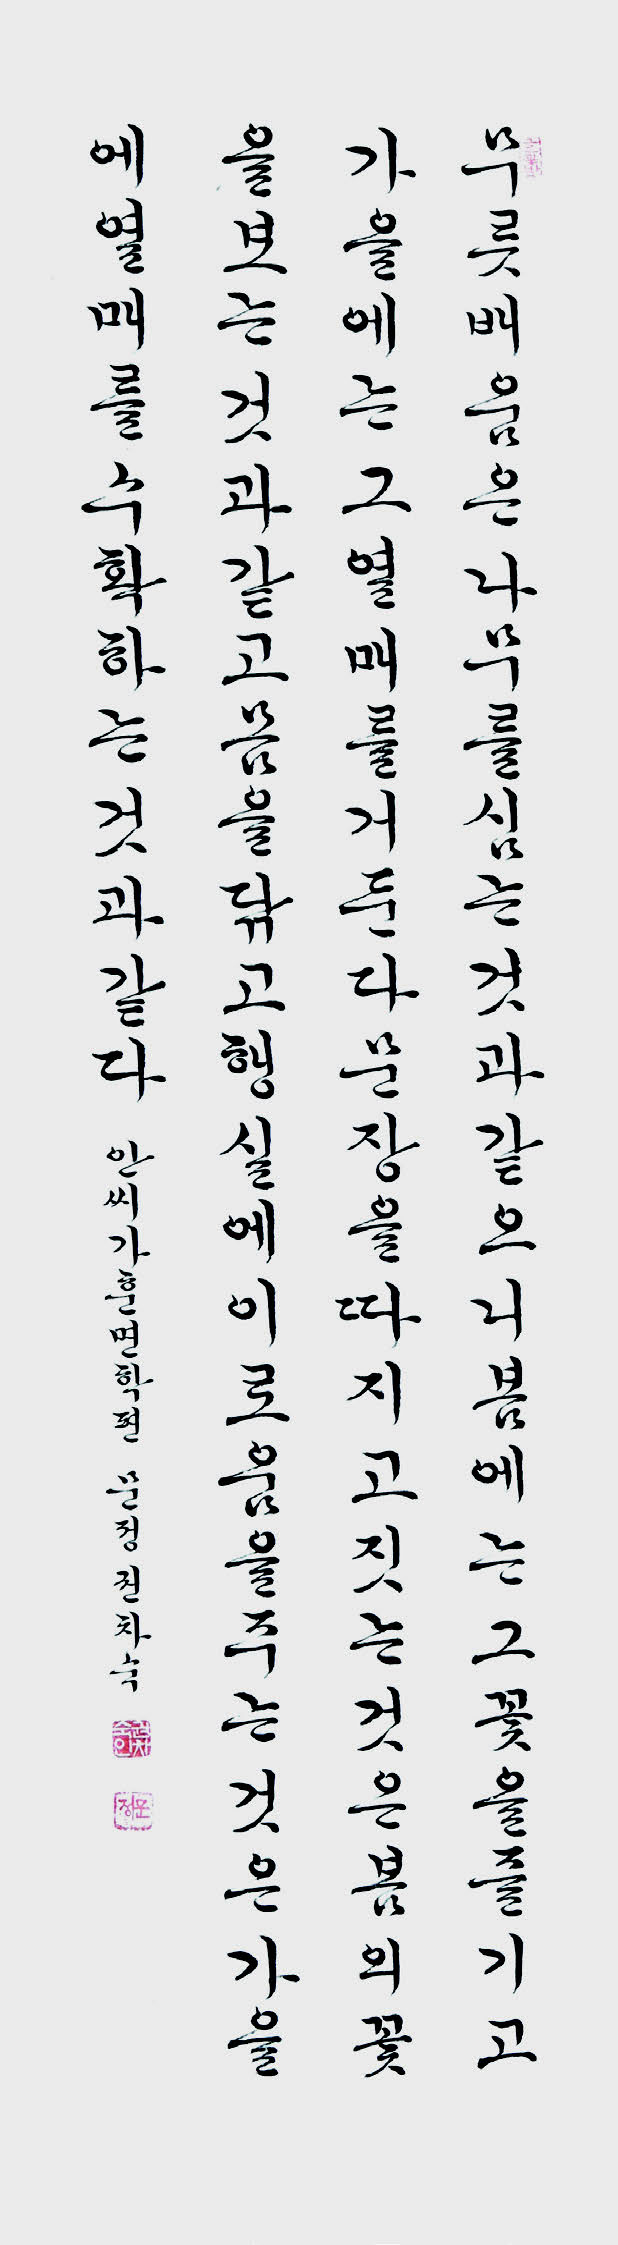 무릇배움은나무를심는것과같으니봄에는그꽃을즐기고
가을에는그열매를거둔다문장을따지고짓는것은봄의꽃
을보는것과같고몸을닦고행실에이로움을주는것은가을
에열매를수확하는것과같다 안씨가훈면학편 문정전차숙
문정